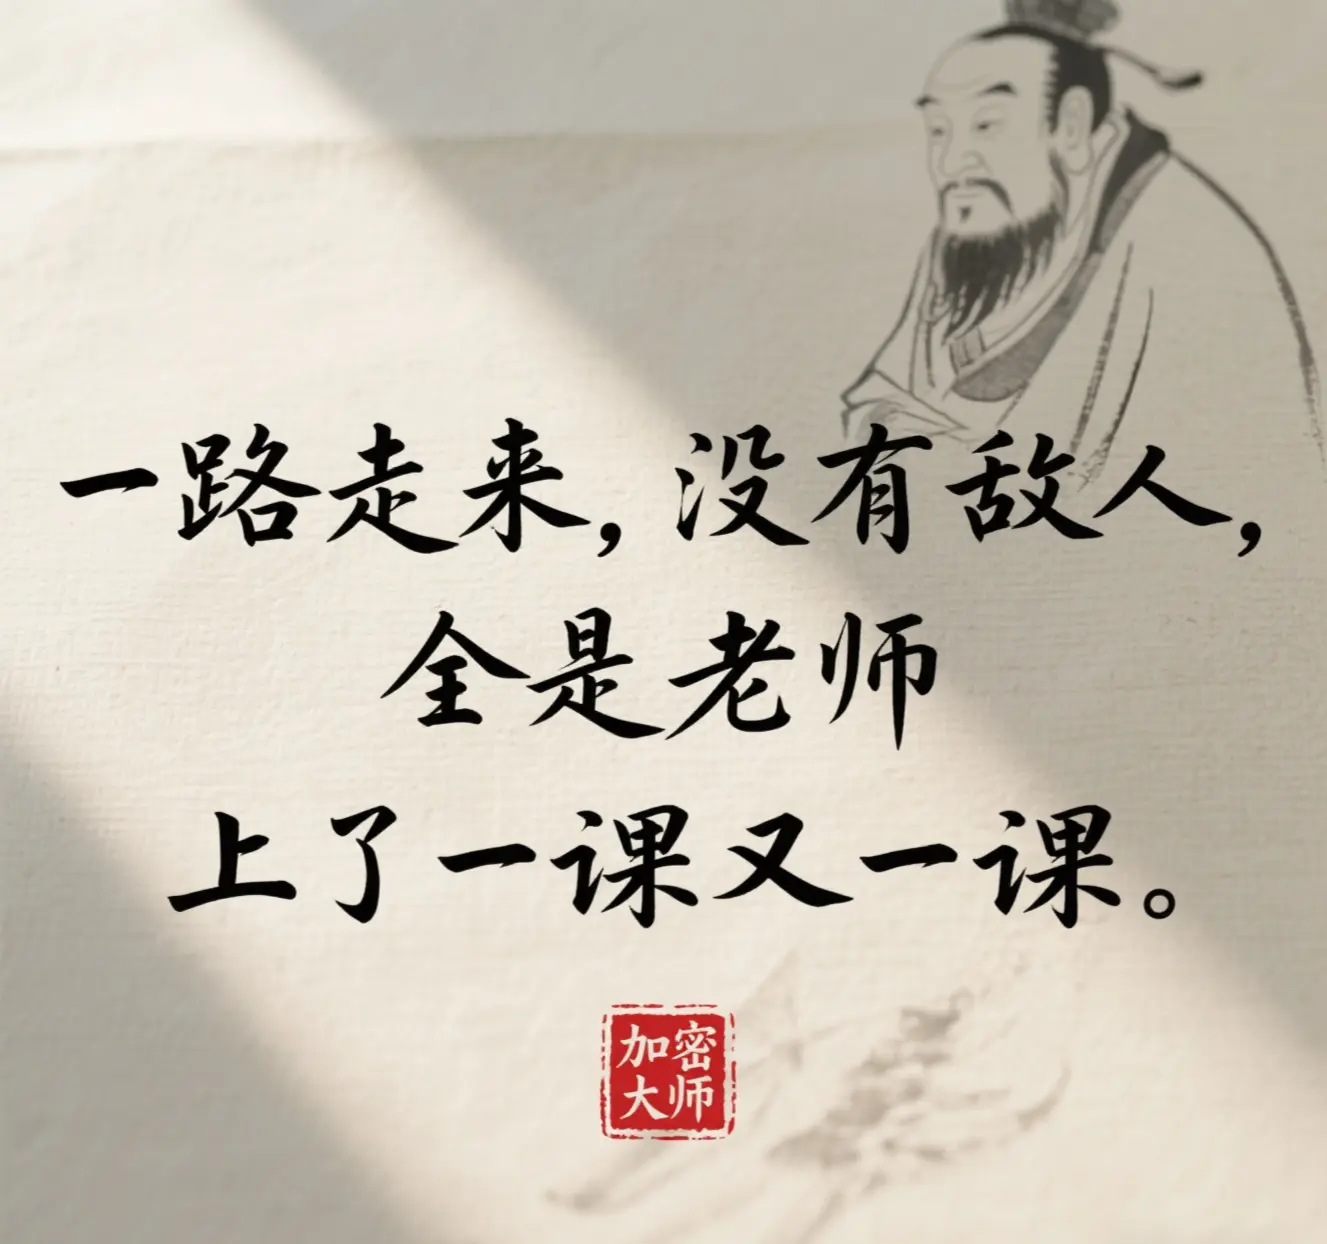 一路走来，没有敌人，
全是老师
上了一课又一课。
加密
大师